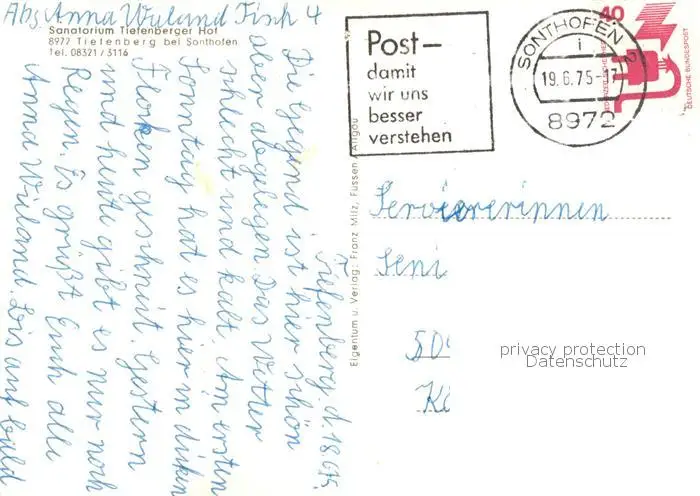 Abs. Anna Wieland Tisch 4
Sanatorium Tiefenberger Hof
8972 Tiefenberg bei Sonthofen
Tel. 08321 / 3116
Tiefenberg, d. 18.6.75.
Die Gegend ist hier schön
aber abgelegen. Das Wetter
schlecht und kalt. Am ersten
Sonntag hat es hier in dicken
Flocken geschneit. Gestern
und heute gibt es nur noch
Regen. Es grüßt Euch alle
Anna Wieland. Bis auf bald
Eigentum u. Verlag: Franz Milz, Füssen / Allgäu
Post—
damit
wir uns
besser
verstehen
SONTHOFEN 2
i
19.6.75-17
8972
40
DEUTSCHE BUNDESPOST
Serviererinnen
Seni
50
Kö
privacy protection
Datenschutz